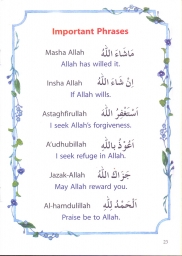 Important Phrases
Masha Allah مَاشَاءَ اللّٰهُ
Allah has willed it.
Insha Allah إِنْ شَاءَ اللّٰهُ
If Allah wills.
Astaghfirullah اَسْتَغْفِرُ اللّٰهَ
I seek Allah's forgiveness.
A'udhubillah اَعُوْذُ بِاللّٰهِ
I seek refuge in Allah.
Jazak-Allah جَزَاكَ اللّٰهُ
May Allah reward you.
Al-hamdulillah اَلْحَمْدُ لِلّٰهِ
Praise be to Allah.